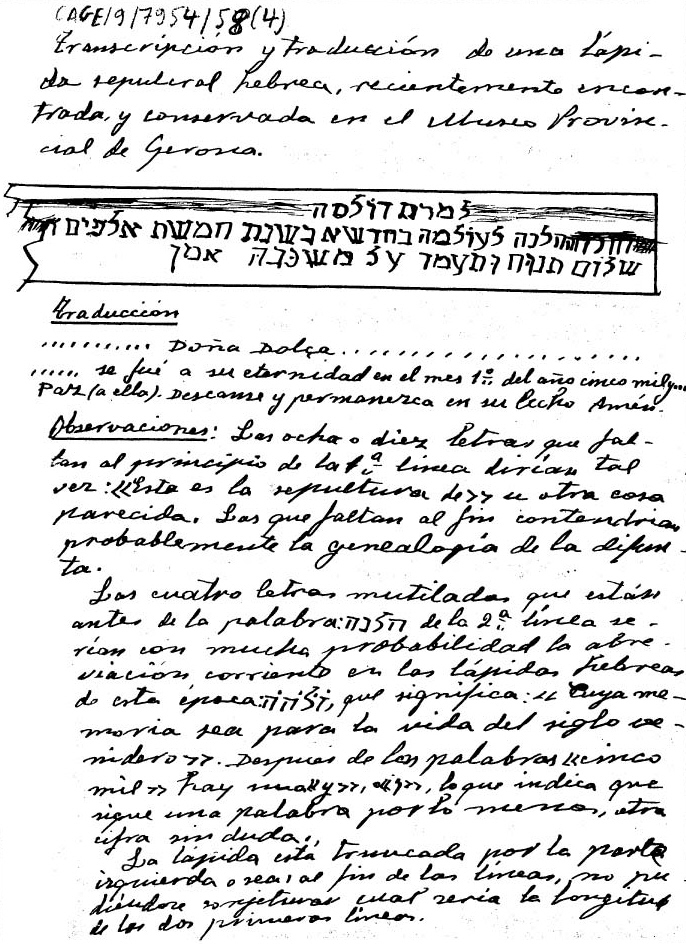 CAGE/9/7954/58(4)
Transcripción y traducción de una lápi-
da sepulcral hebrea, recientemente encon-
trada, y conservada en el Museo Provin-
cial de Gerona.
למרת דולסה
הלכה לעולמה בחדש א בשנת חמשת אלפים
שלום תנוח ותעמד על משכבה אמן
Traducción
........... Doña Dolça....................
...... se fué a su eternidad en el mes 1º del año cinco mil y...
Paz (a ella). Descanse y permanezca en su lecho Amén.
Observaciones: Las ocho o diez letras que fal-
tan al principio de la 1ª línea dirían tal
vez: «Esta es la sepultura de» u otra cosa
parecida. Las que faltan al fin contendrían
probablemente la genealogía de la difun-
ta.
Las cuatro letras mutiladas que están
antes de la palabra: הלכה de la 2ª línea se-
rían con mucha probabilidad la abre-
viación corriente en las lápidas hebreas
de esta época: que significa: «Cuya me-
moria sea para la vida del siglo ve-
nidero». Despues de las palabras «cinco
mil» hay una «y», lo que indica que
sigue una palabra por lo menos, otra
cifra sin duda.
La lápida está truncada por la parte
izquierda o sea; al fin de las líneas, no pu
diéndose conjeturar cual sería la longitud
de las dos primeras líneas.